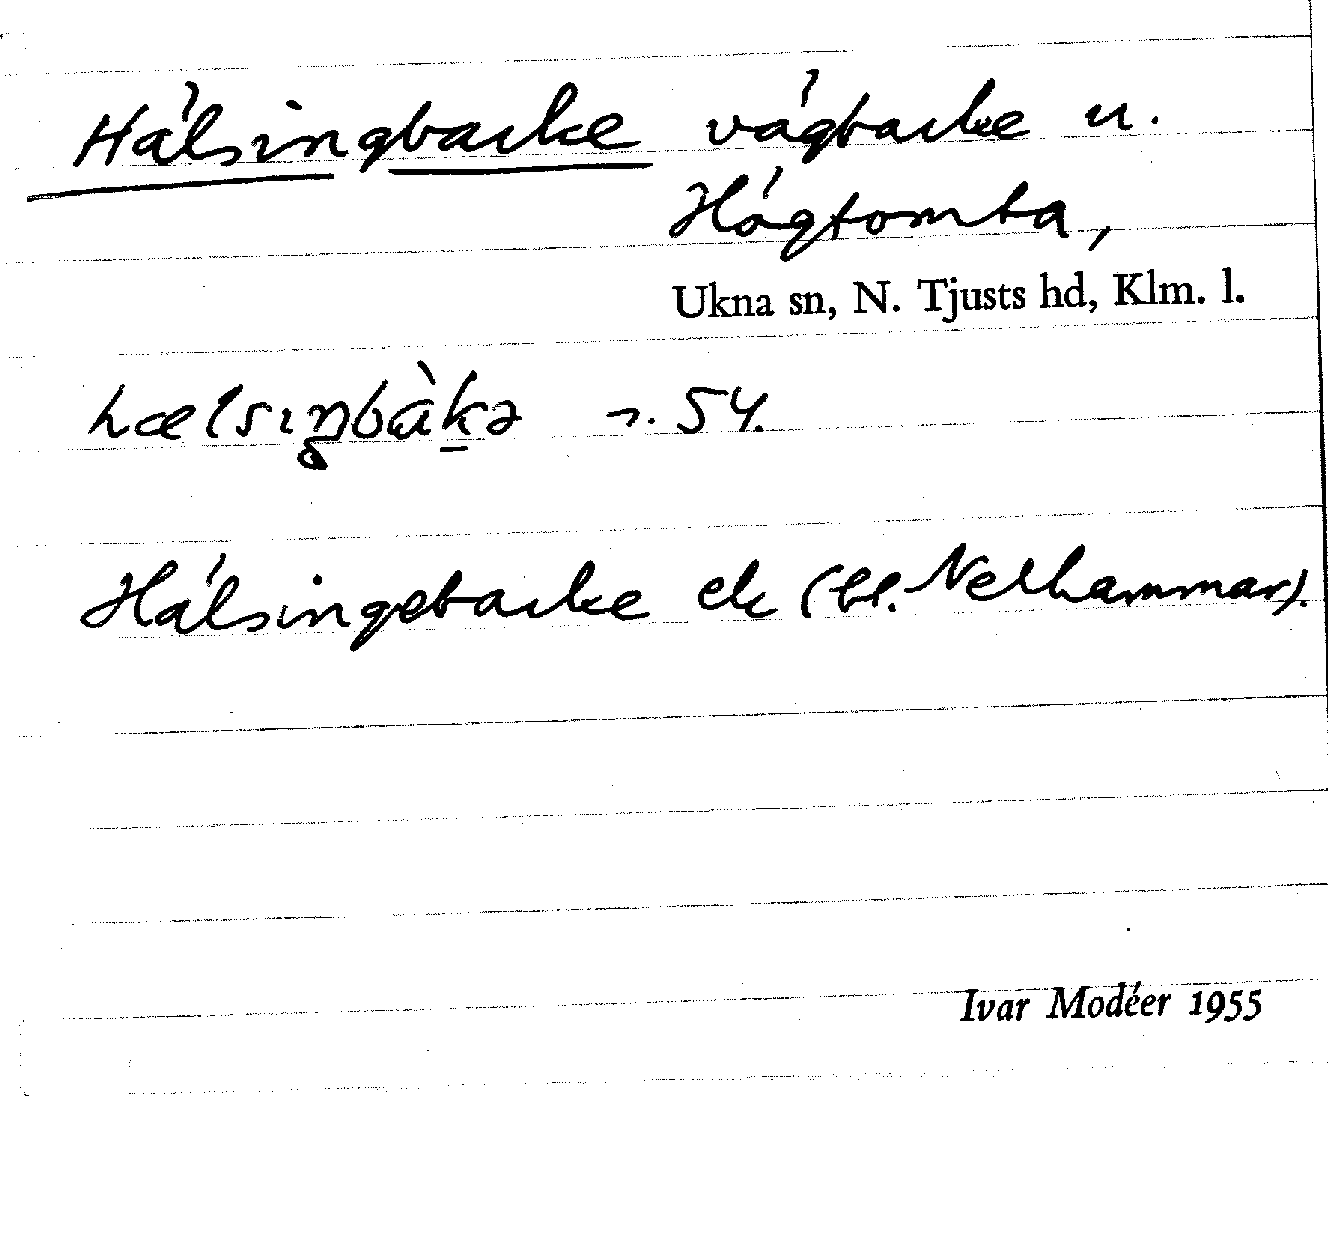 Hälsingbacke vägbacke u.
Högtomta,
Ukna sn, N. Tjusts hd, Klm. l.
hælsıŋbàkə n. 54.
Hälsingebacke ek (bl. Nelhammar).
Ivar Modéer 1955